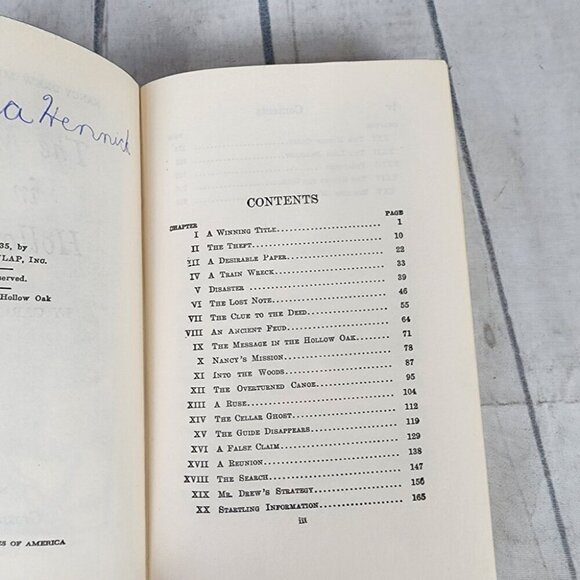 a Hennick
35, by
LAP, INC.
served.
Hollow Oak
ES OF AMERICA
CONTENTS
CHAPTER PAGE
I A WINNING TITLE 1
II THE THEFT 10
III A DESIRABLE PAPER 22
IV A TRAIN WRECK 33
V DISASTER 39
VI THE LOST NOTE 46
VII THE CLUE TO THE DEED 55
VIII AN ANCIENT FEUD 64
IX THE MESSAGE IN THE HOLLOW OAK 71
X NANCY'S MISSION 78
XI INTO THE WOODS 87
XII THE OVERTURNED CANOE 95
XIII A RUSE 104
XIV THE CELLAR GHOST 112
XV THE GUIDE DISAPPEARS 119
XVI A FALSE CLAIM 129
XVII A REUNION 138
XVIII THE SEARCH 147
XIX MR. DREW'S STRATEGY 156
XX STARTLING INFORMATION 165
iii